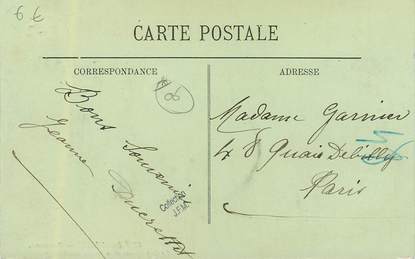 6 €
CARTE POSTALE
CORRESPONDANCE
ADRESSE
Bons Souvenirs
Jeanne Ducrettet
Collection
J.F.M.
Madame Garnier
48 Quai Debilly
Paris